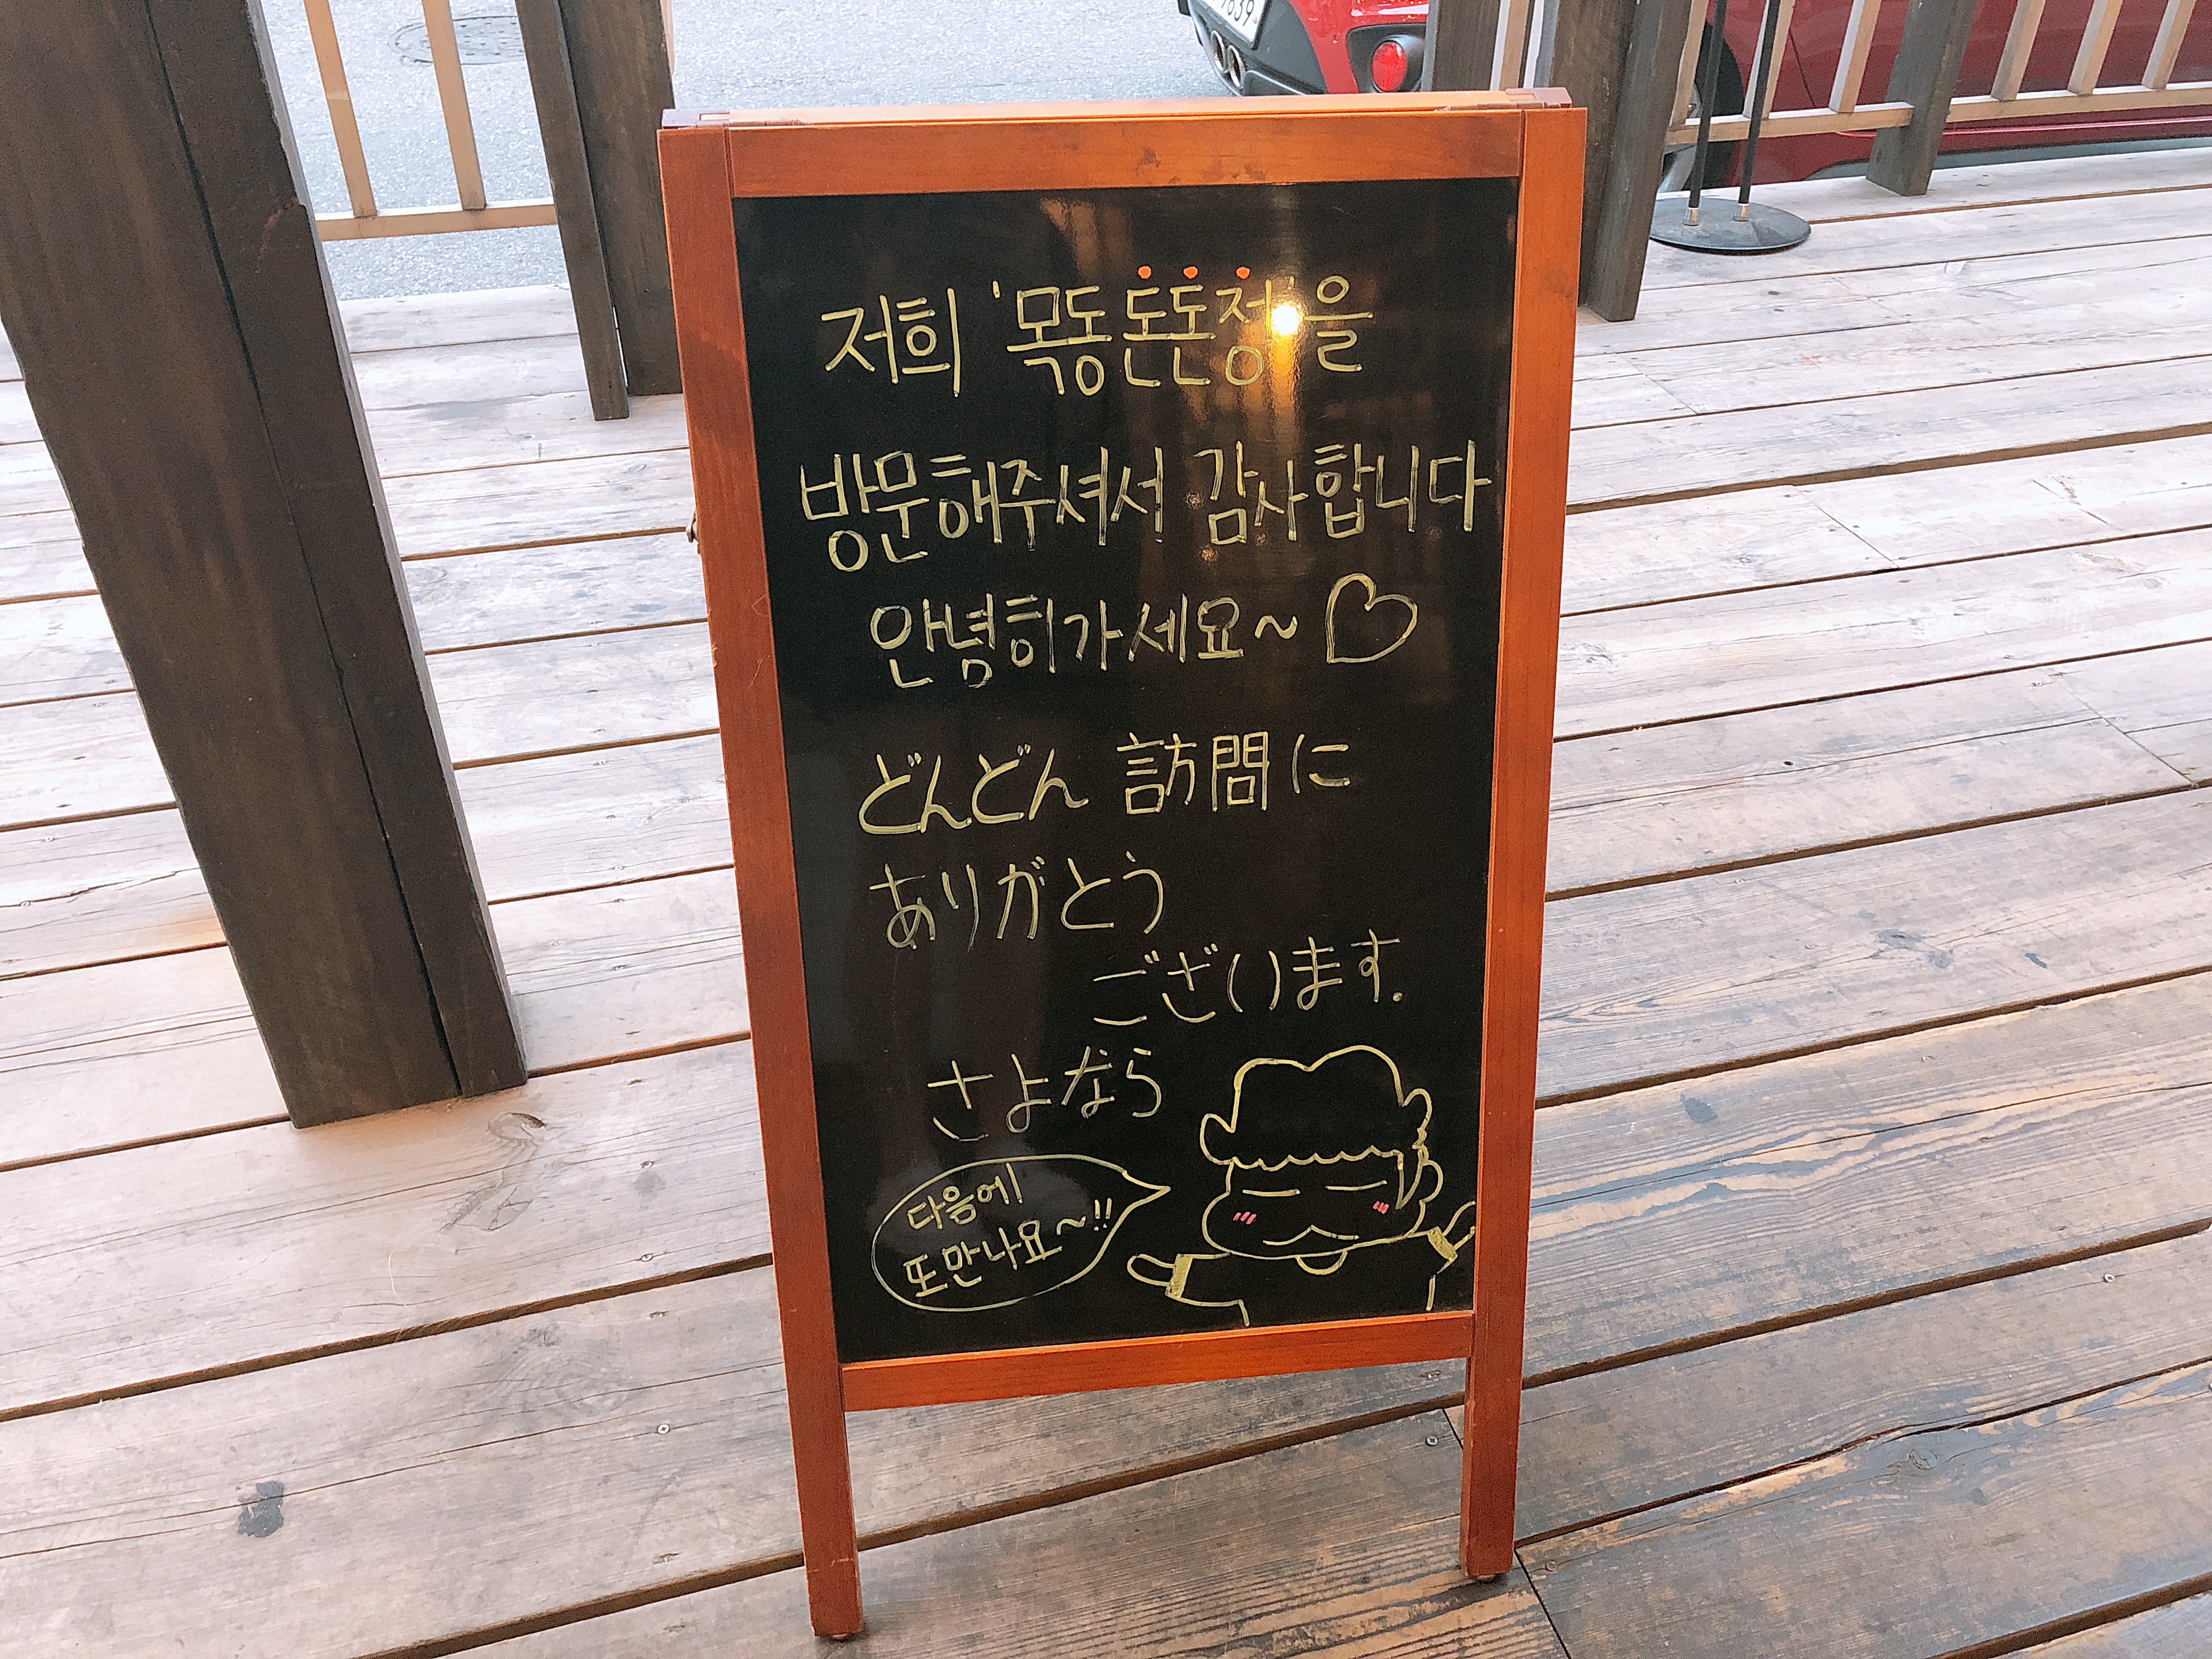 저희 '목동돈돈정'을
방문해주셔서 감사합니다
안녕히가세요~ ♡
どんどん 訪問に
ありがとう
ございます.
さよなら
다음에
또만나요~!!